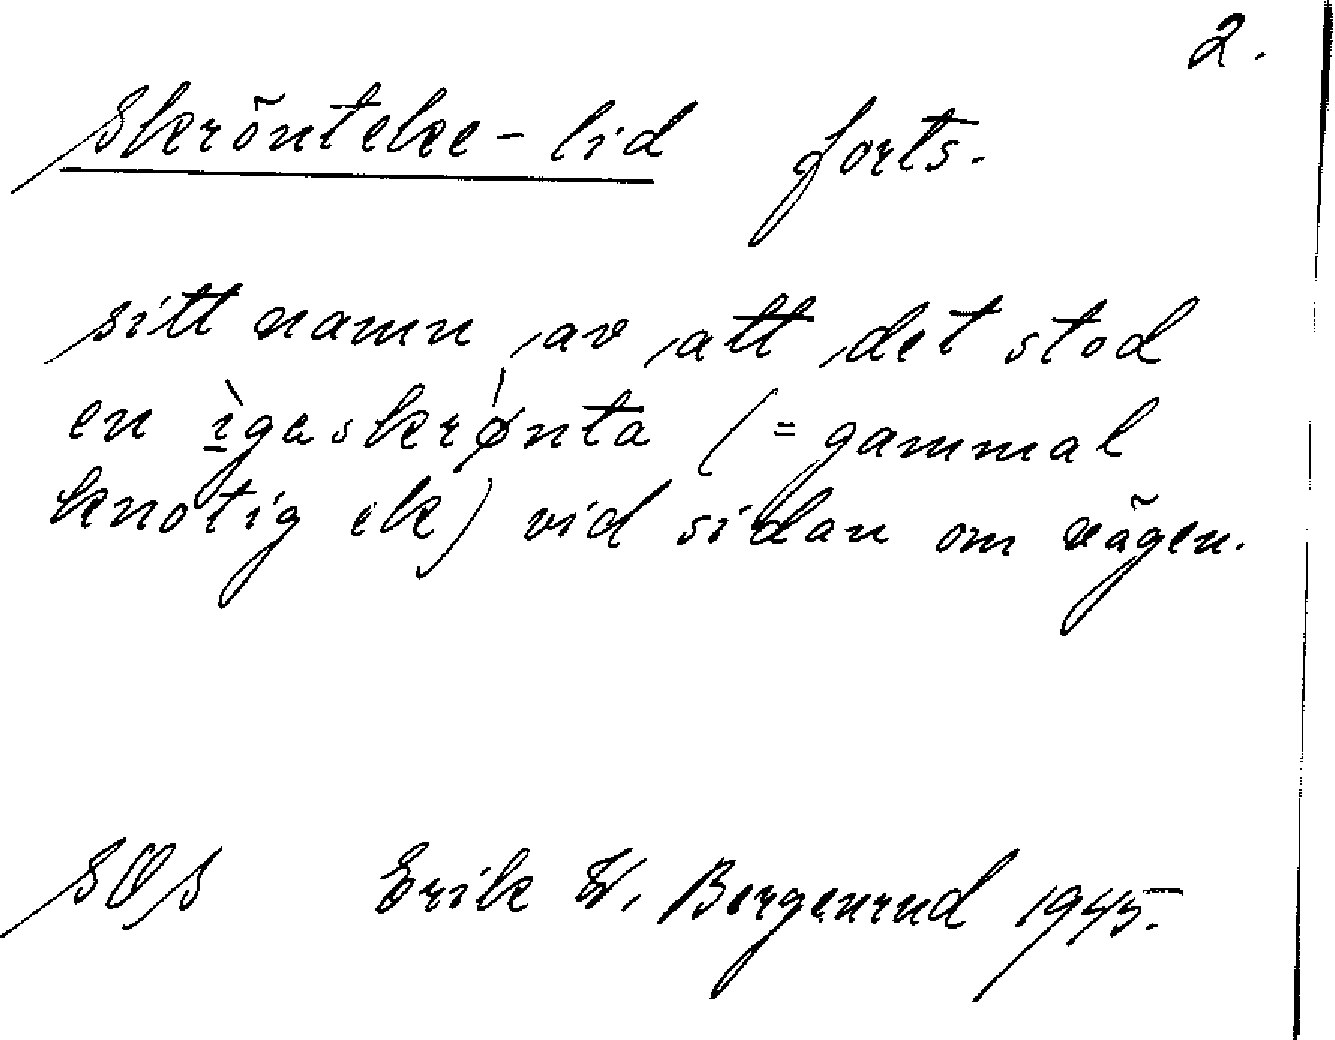 2.
Skrönteke-lid forts.
sitt namn av att det stod
en ìgaskrǿnta (= gammal
knotig ek) vid sidan om vägen.
SOS Erik W. Bergenrud 1945.